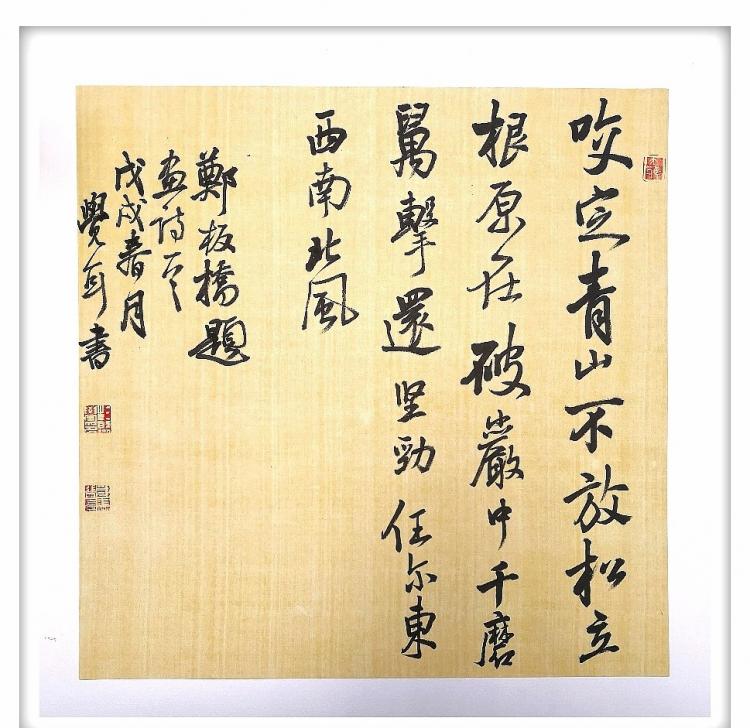 咬定青山不放松立
根原在破巖中千磨
萬擊還坚勁任尔東
西南北風
鄭板橋題
畫诗
戊戌春月
覺書